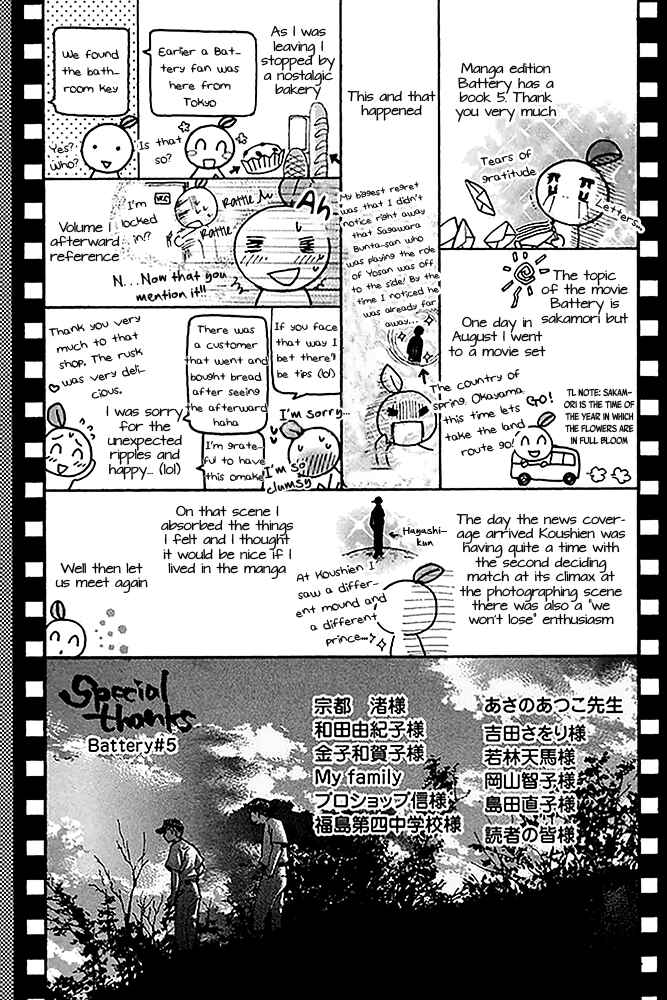 Manga edition
Battery has a
book 5. Thank
you very much
Tears of
gratitude
Letters...
The topic
of the movie
Battery is
sakamori but
One day in
August I went
to a movie set
TL NOTE: SAKAM-
ORI IS THE TIME OF
THE YEAR IN WHICH
THE FLOWERS ARE
IN FULL BLOOM
The country of
spring. Okayama
this time lets
take the land
route go!
GO!
This and that
happened
My biggest regret
was that I didn't
notice right away
that Sasawara
Bunta-san who
was playing the role
of Yosan was off
to the side! By the
time I noticed he
was already far
away...
As I was
leaving I
stopped by
a nostalgic
bakery
Earlier a Bat-
tery fan was
here from
Tokyo
Is that
so?
We found
the bath-
room key
Yes?
Who?
Volume 1
afterward
reference
I'm
locked
in!?
WC
Rattle
Rattle
Ah
N...Now that you
mention it!!
If you face
that way I
bet there'll
be tips (lol)
There was
a customer
that went and
bought bread
after seeing
the afterward
haha
I'm grate-
ful to have
this omake
I'm sorry...
I'm so
clumsy
Thank you very
much to that
shop. The rusk
was very deli-
cious.
I was sorry
for the
unexpected
ripples and
happy... (lol)
The day the news cover-
age arrived Koushien was
having quite a time with
the second deciding
match at its climax at
the photographing scene
there was also a "we
won't lose" enthusiasm
Hayashi-
kun
At Koushien I
saw a differ-
ent mound and
a different
prince...
On that scene I
absorbed the things
I felt and I thought
it would be nice if I
lived in the manga
Well then let
us meet again
Special
thanks
Battery#5
あさのあつこ先生
吉田さをり様
若林天馬様
岡山智子様
島田直子様
読者の皆様
宗都 渚様
和田由紀子様
金子和賀子様
My family
プロショップ信様
福島第四中学校様